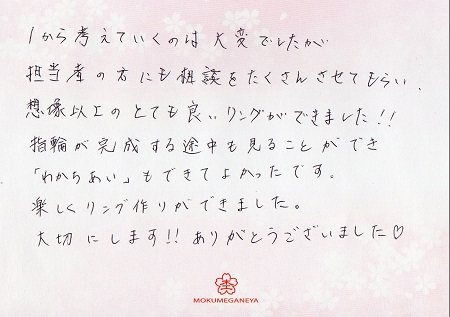 1から考えていくのは大変でしたが
担当者の方にも相談をたくさんさせてもらい、
想像以上のとても良いリングができました!!
指輪が完成する途中も見ることができ
「わかちあい」もできてよかったです。
楽しくリング作りができました。
大切にします!! ありがとうございました♡
MOKUMEGANEYA